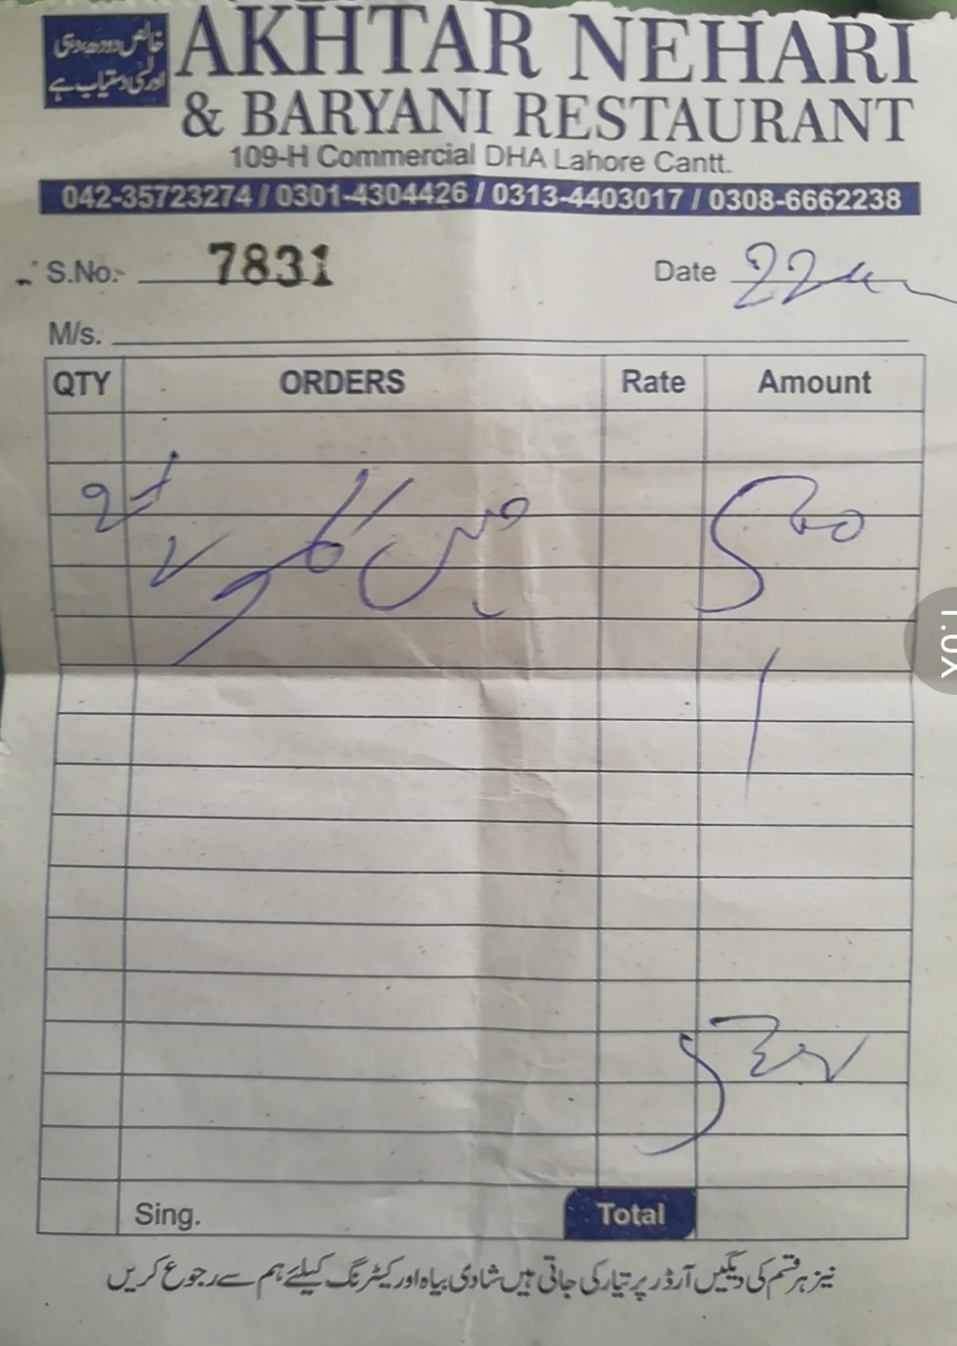 خالص دودھ دہی
اور لسی دستیاب ہے
AKHTAR NEHARI
& BARYANI RESTAURANT
109-H Commercial DHA Lahore Cantt.
042-35723274 / 0301-4304426 / 0313-4403017 / 0308-6662238
S.No:- 7831 Date 22
M/s.
QTY ORDERS Rate Amount
Sing. Total
نیز ہر قسم کی دیگیں آرڈر پر تیار کی جاتی ہیں شادی بیاہ اور کیٹرنگ کیلئے ہم سے رجوع کریں
1.0x